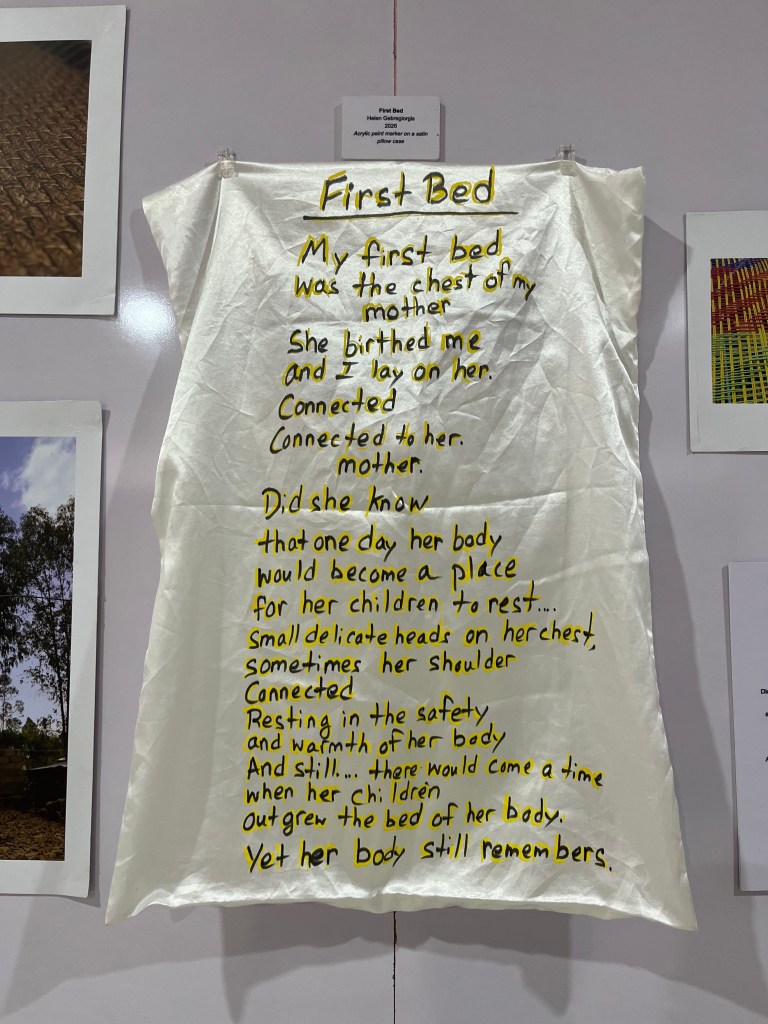 First Bed
Helen Gebregiorgis
2026
Acrylic paint marker on a satin
pillow case
First Bed
My first bed
was the chest of my
mother
She birthed me
and I lay on her.
Connected
Connected to her.
mother.
Did she know
that one day her body
would become a place
for her children to rest...
small delicate heads on her chest,
sometimes her shoulder
Connected
Resting in the safety
and warmth of her body
And still... there would come a time
when her children
outgrew the bed of her body.
Yet her body still remembers.